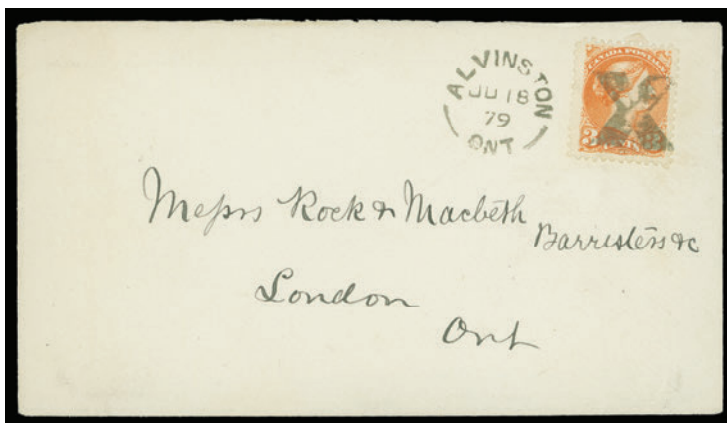 ALVINSTON
JU 18
79
ONT
CANADA POSTAGE
3
Messrs Rock & Macbeth
Barristers &c
London
Ont